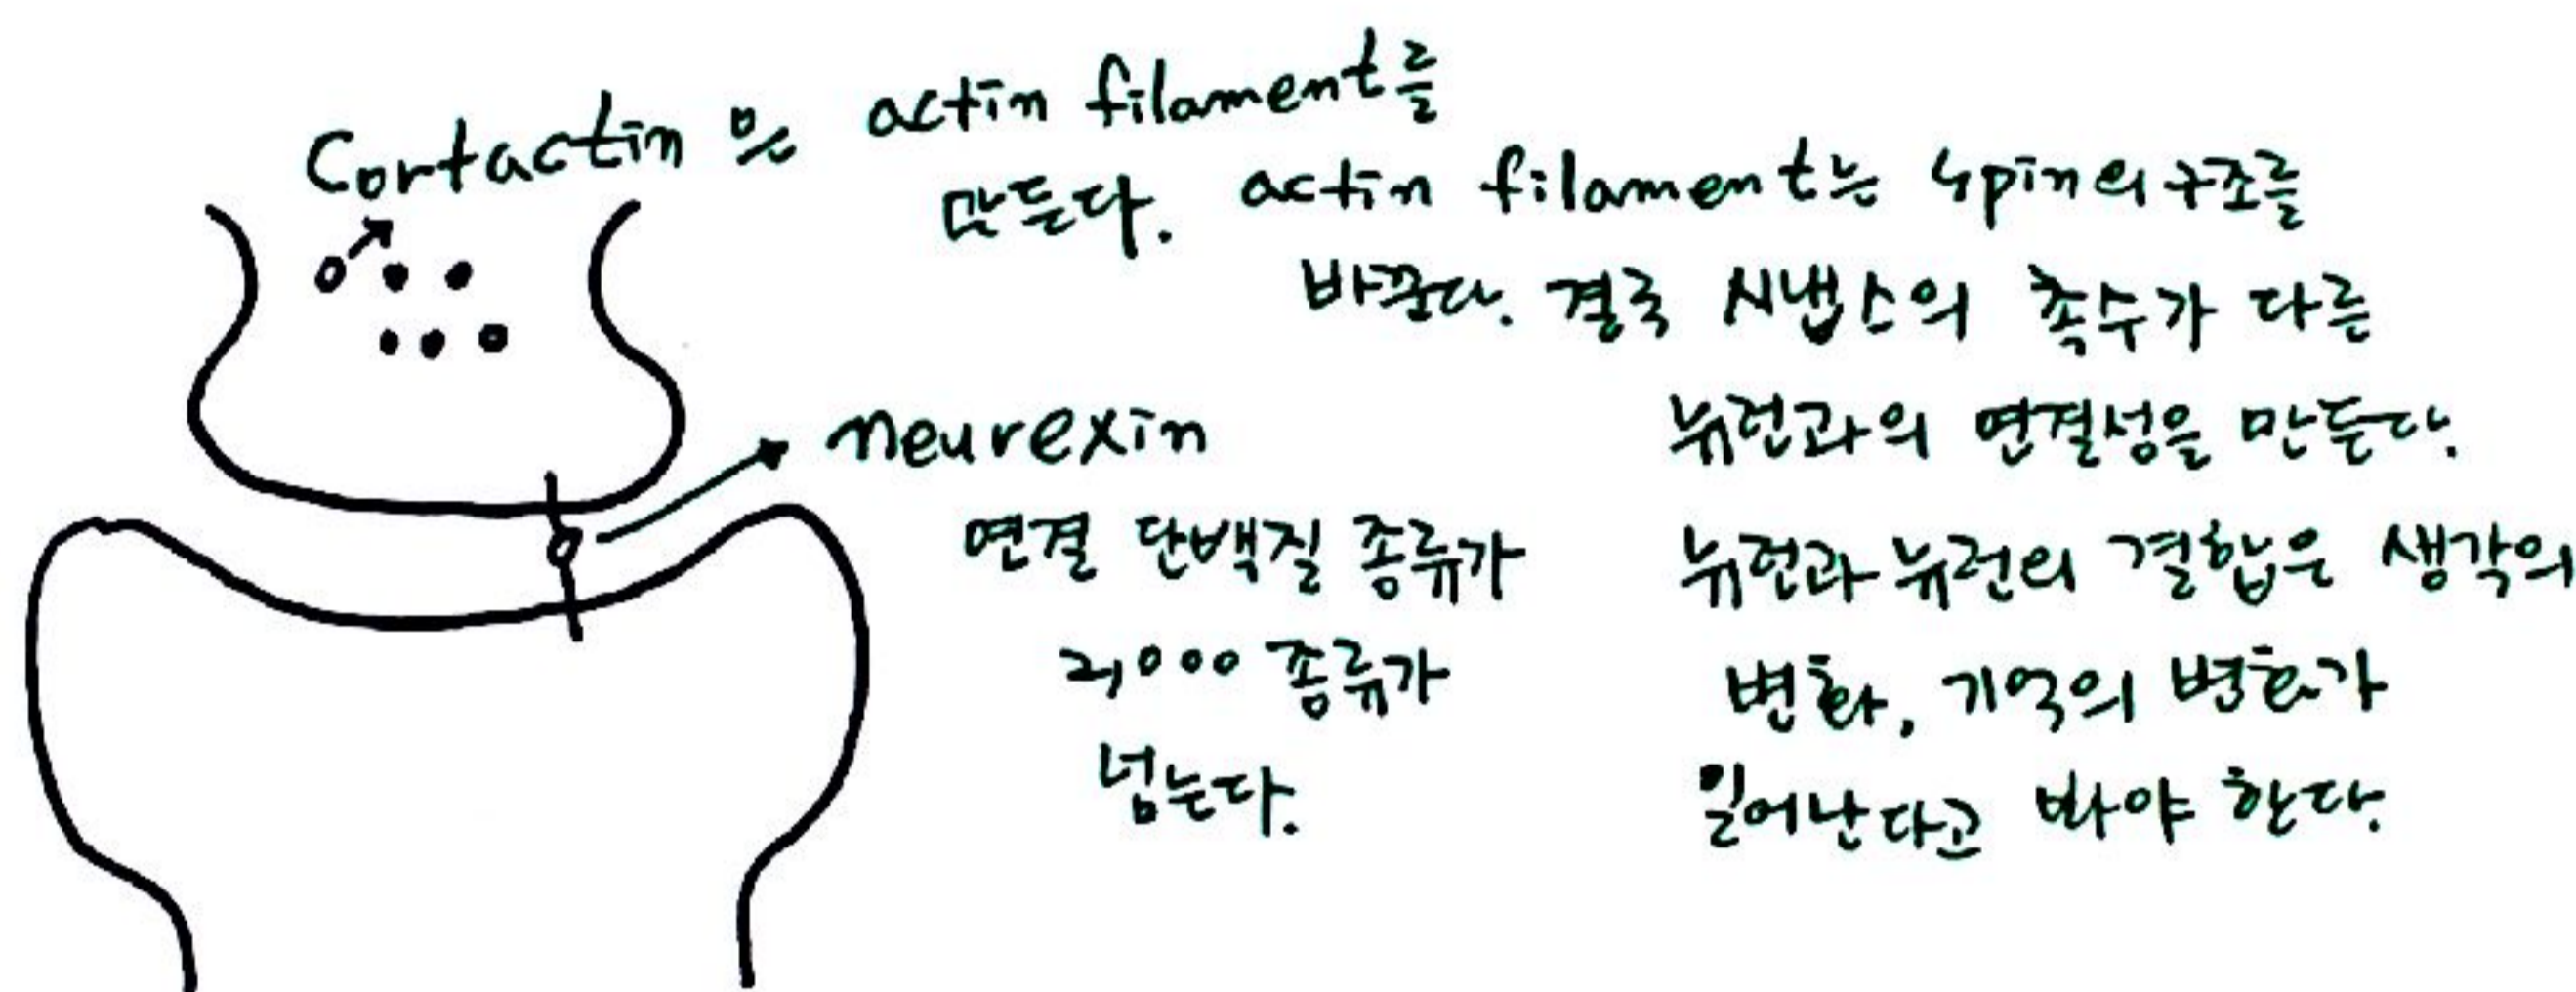 Cortactin은 actin filament를
만든다. actin filament는 spin의 구조를
바꾼다. 결국 시냅스의 촉수가 다른
뉴런과의 연결성을 만든다.
뉴런과 뉴런의 결합은 생각의
변화, 기억의 변화가
일어난다고 봐야 한다.
neurexin
연결 단백질 종류가
2,000 종류가
넘는다.